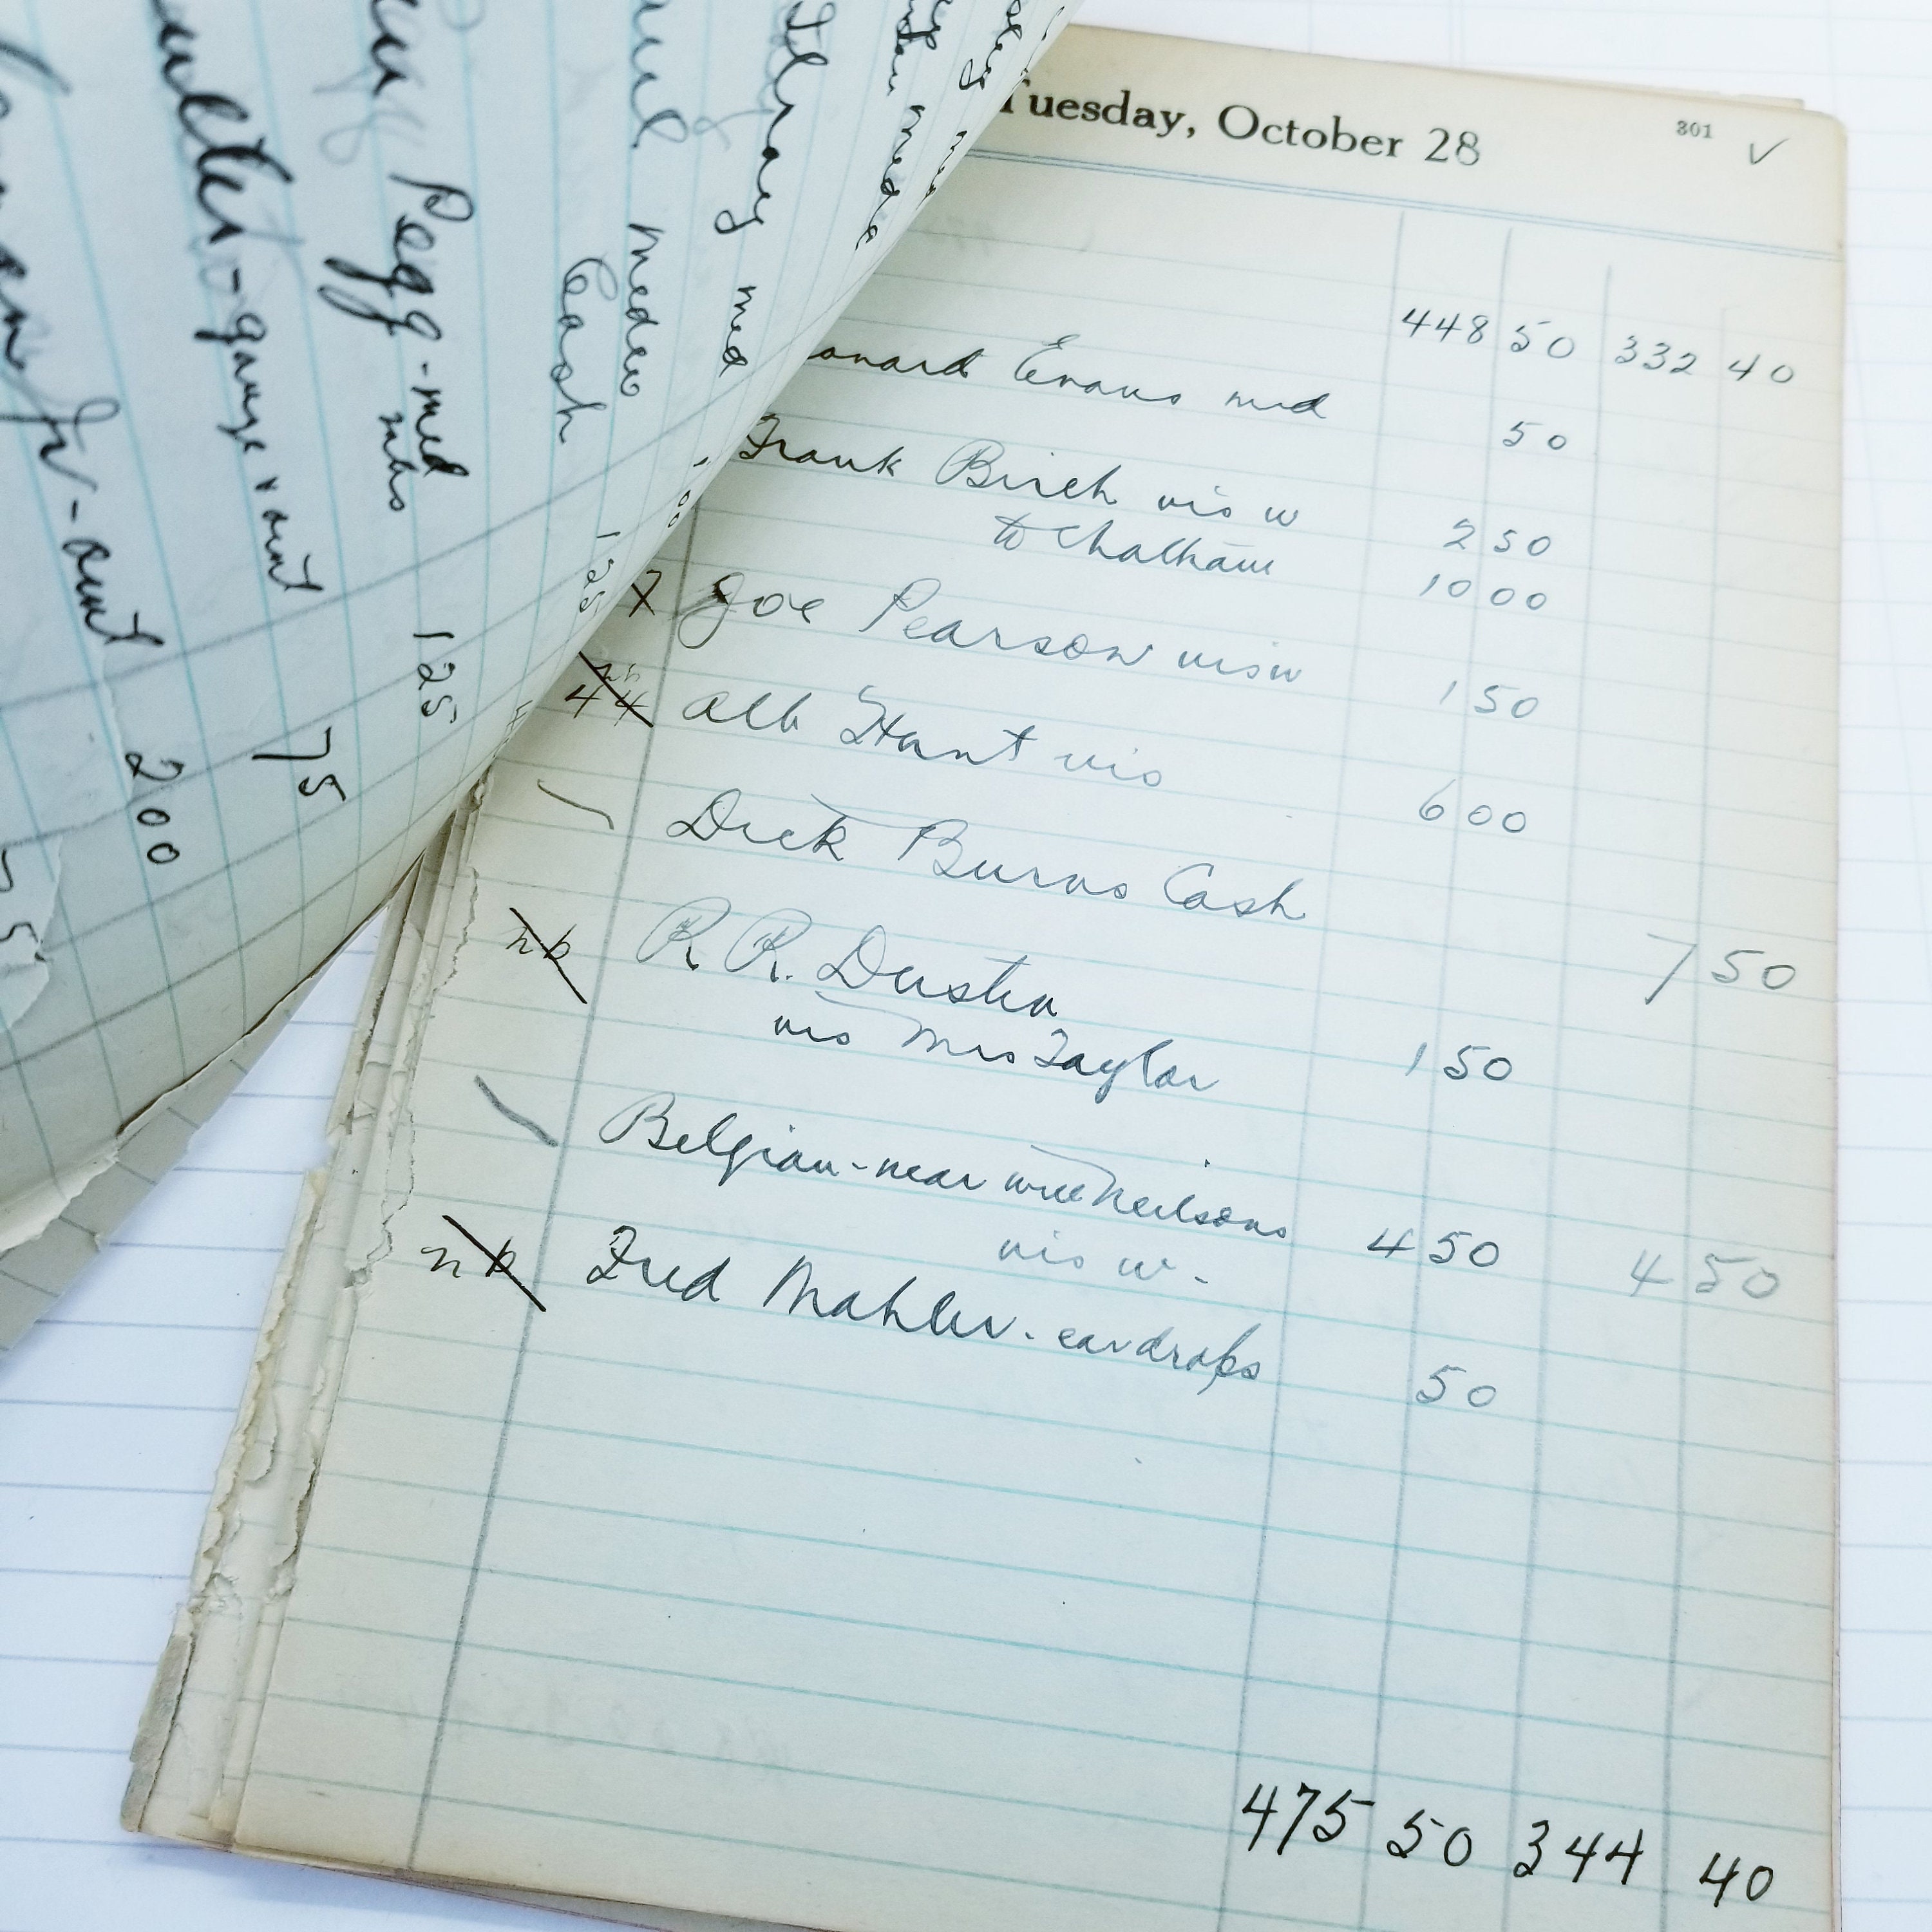 Tuesday, October 28 301 ✓
448 50 332 40
Evans med 50
Frank Birch vis w 2 50
to Chatham 10 00
X Joe Pearson vis w 1 50
44 Alb Hunt vis 6 00
Dick Burns Cash 7 50
nb R R. Duster
vis Mrs Taylor 1 50
Belgian - near Neilsons 4 50 4 50
vis w -
nb Fred Mahler - eardrops 50
475 50 344 40
med
meds
Cash
1 00
1 25
Pegg - med
1 25
- gauze + oint
75
Jr - oint
2 00